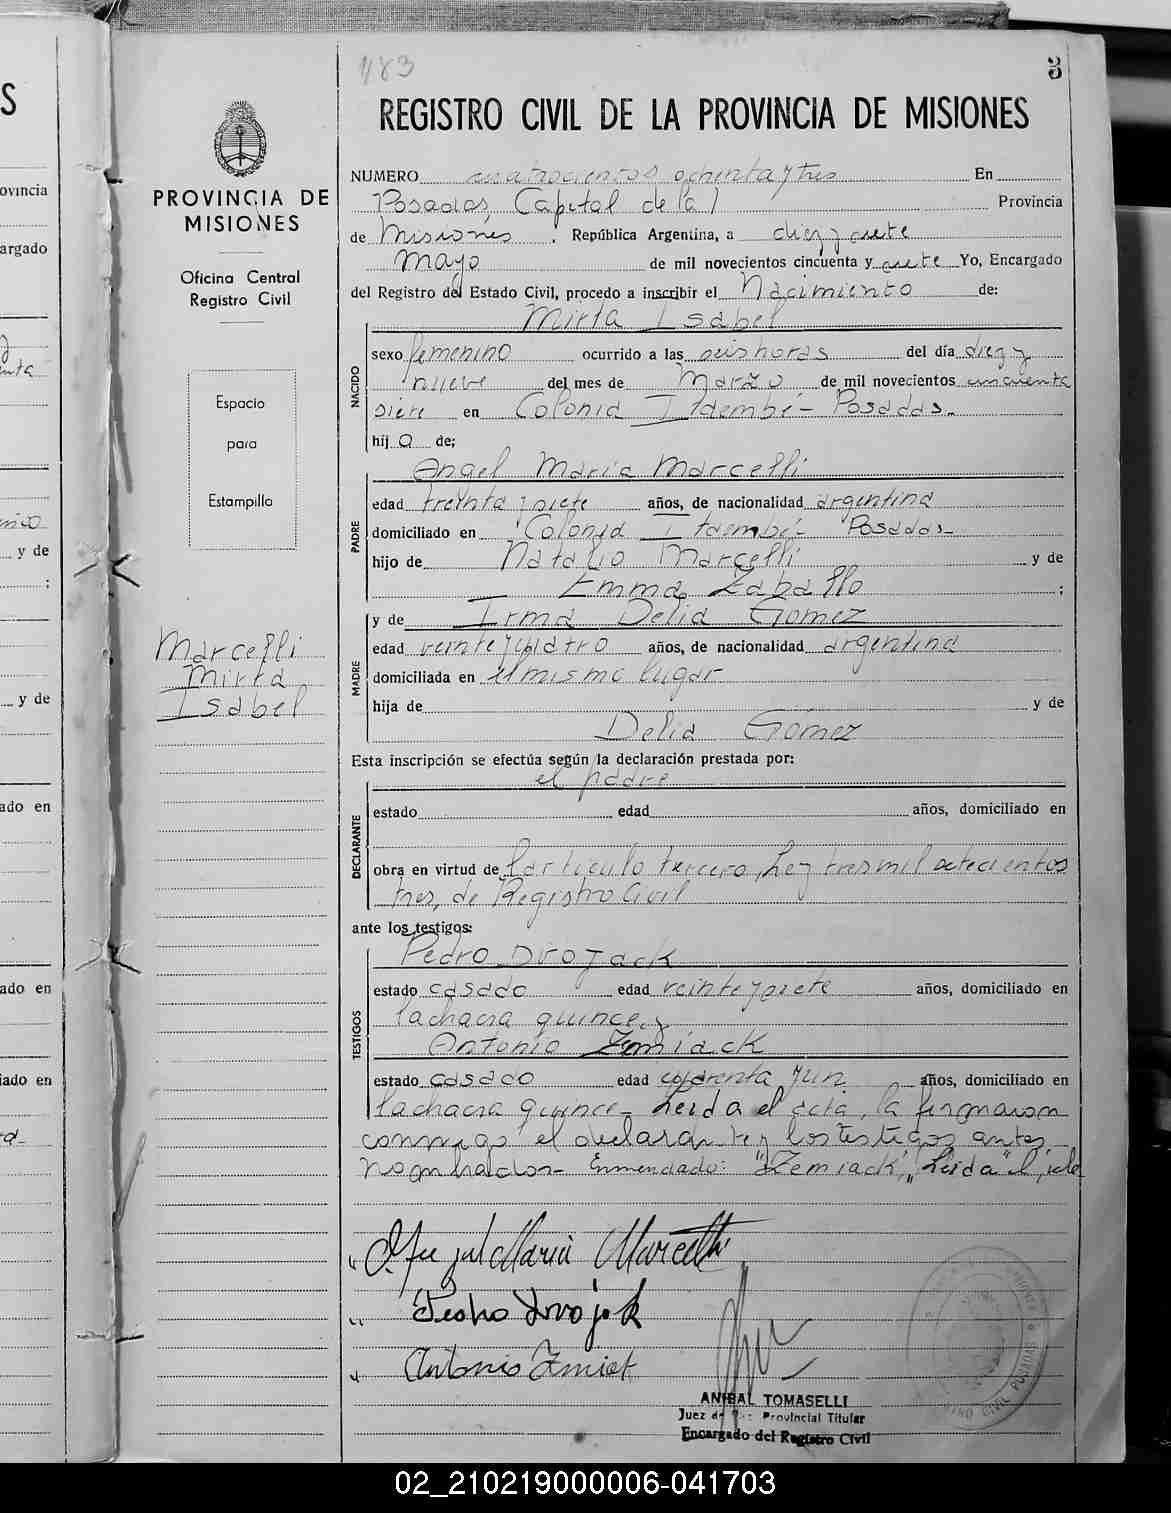 483
5
REGISTRO CIVIL DE LA PROVINCIA DE MISIONES
PROVINCIA DE
MISIONES
Oficina Central
Registro Civil
Espacio
para
Estampilla
Marcelli
Mirta
Isabel
NUMERO cuatrocientos ochenta y tres En
Posadas, Capital de la Provincia
de Misiones , República Argentina, a diez y siete
Mayo de mil novecientos cincuenta y siete Yo, Encargado
del Registro del Estado Civil, procedo a inscribir el Nacimiento de:
Mirta Isabel
NACIDO
sexo femenino ocurrido a las seis horas del día diez y
nueve del mes de Marzo de mil novecientos cincuenta
siete en Colonia Itaembé - Posadas.
hij a de;
PADRE
Angel Maria Marcelli
edad treinta y siete años, de nacionalidad argentina
domiciliado en Colonia Itaembé - Posadas-
hijo de Natalio Marcelli y de
Emma Zaballo ;
MADRE
y de Irma Delia Gomez
edad veinte y cuatro años, de nacionalidad argentina
domiciliada en el mismo lugar
hija de y de
Delia Gómez
Esta inscripción se efectúa según la declaración prestada por:
el padre
DECLARANTE
estado edad años, domiciliado en
obra en virtud de l artículo tercero, Ley tres mil setecientos
tres, de Registro Civil
ante los testigos:
TESTIGOS
Pedro Dvojack
estado casado edad veinte y siete años, domiciliado en
la chacra quince y
Antonio Zemiack
estado casado edad cuarenta y un años, domiciliado en
la chacra quince - Leida el acta, la firmaron
conmigo el declarante y los testigos antes
nombrados - Enmendado: "Zemiack", "Leida" el, vale
Angel Maria Marcelli
Pedro Dvojak
Antonio Zmiak
ANIBAL TOMASELLI
Juez de Paz Provincial Titular
Encargado del Registro Civil
02_210219000006-041703